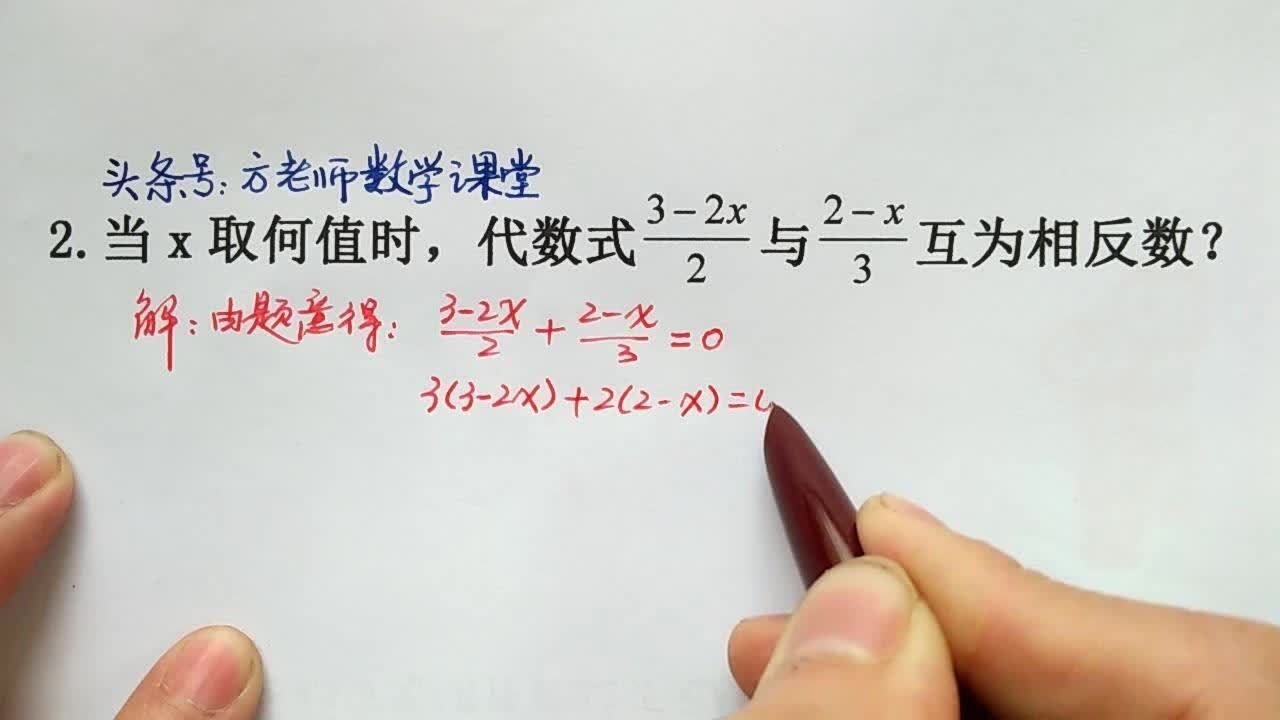 头条号:方老师数学课堂
2. 当 x 取何值时，代数式 (3-2x)/2 与 (2-x)/3 互为相反数？
解：由题意得： (3-2x)/2 + (2-x)/3 = 0
3(3-2x)+2(2-x)=